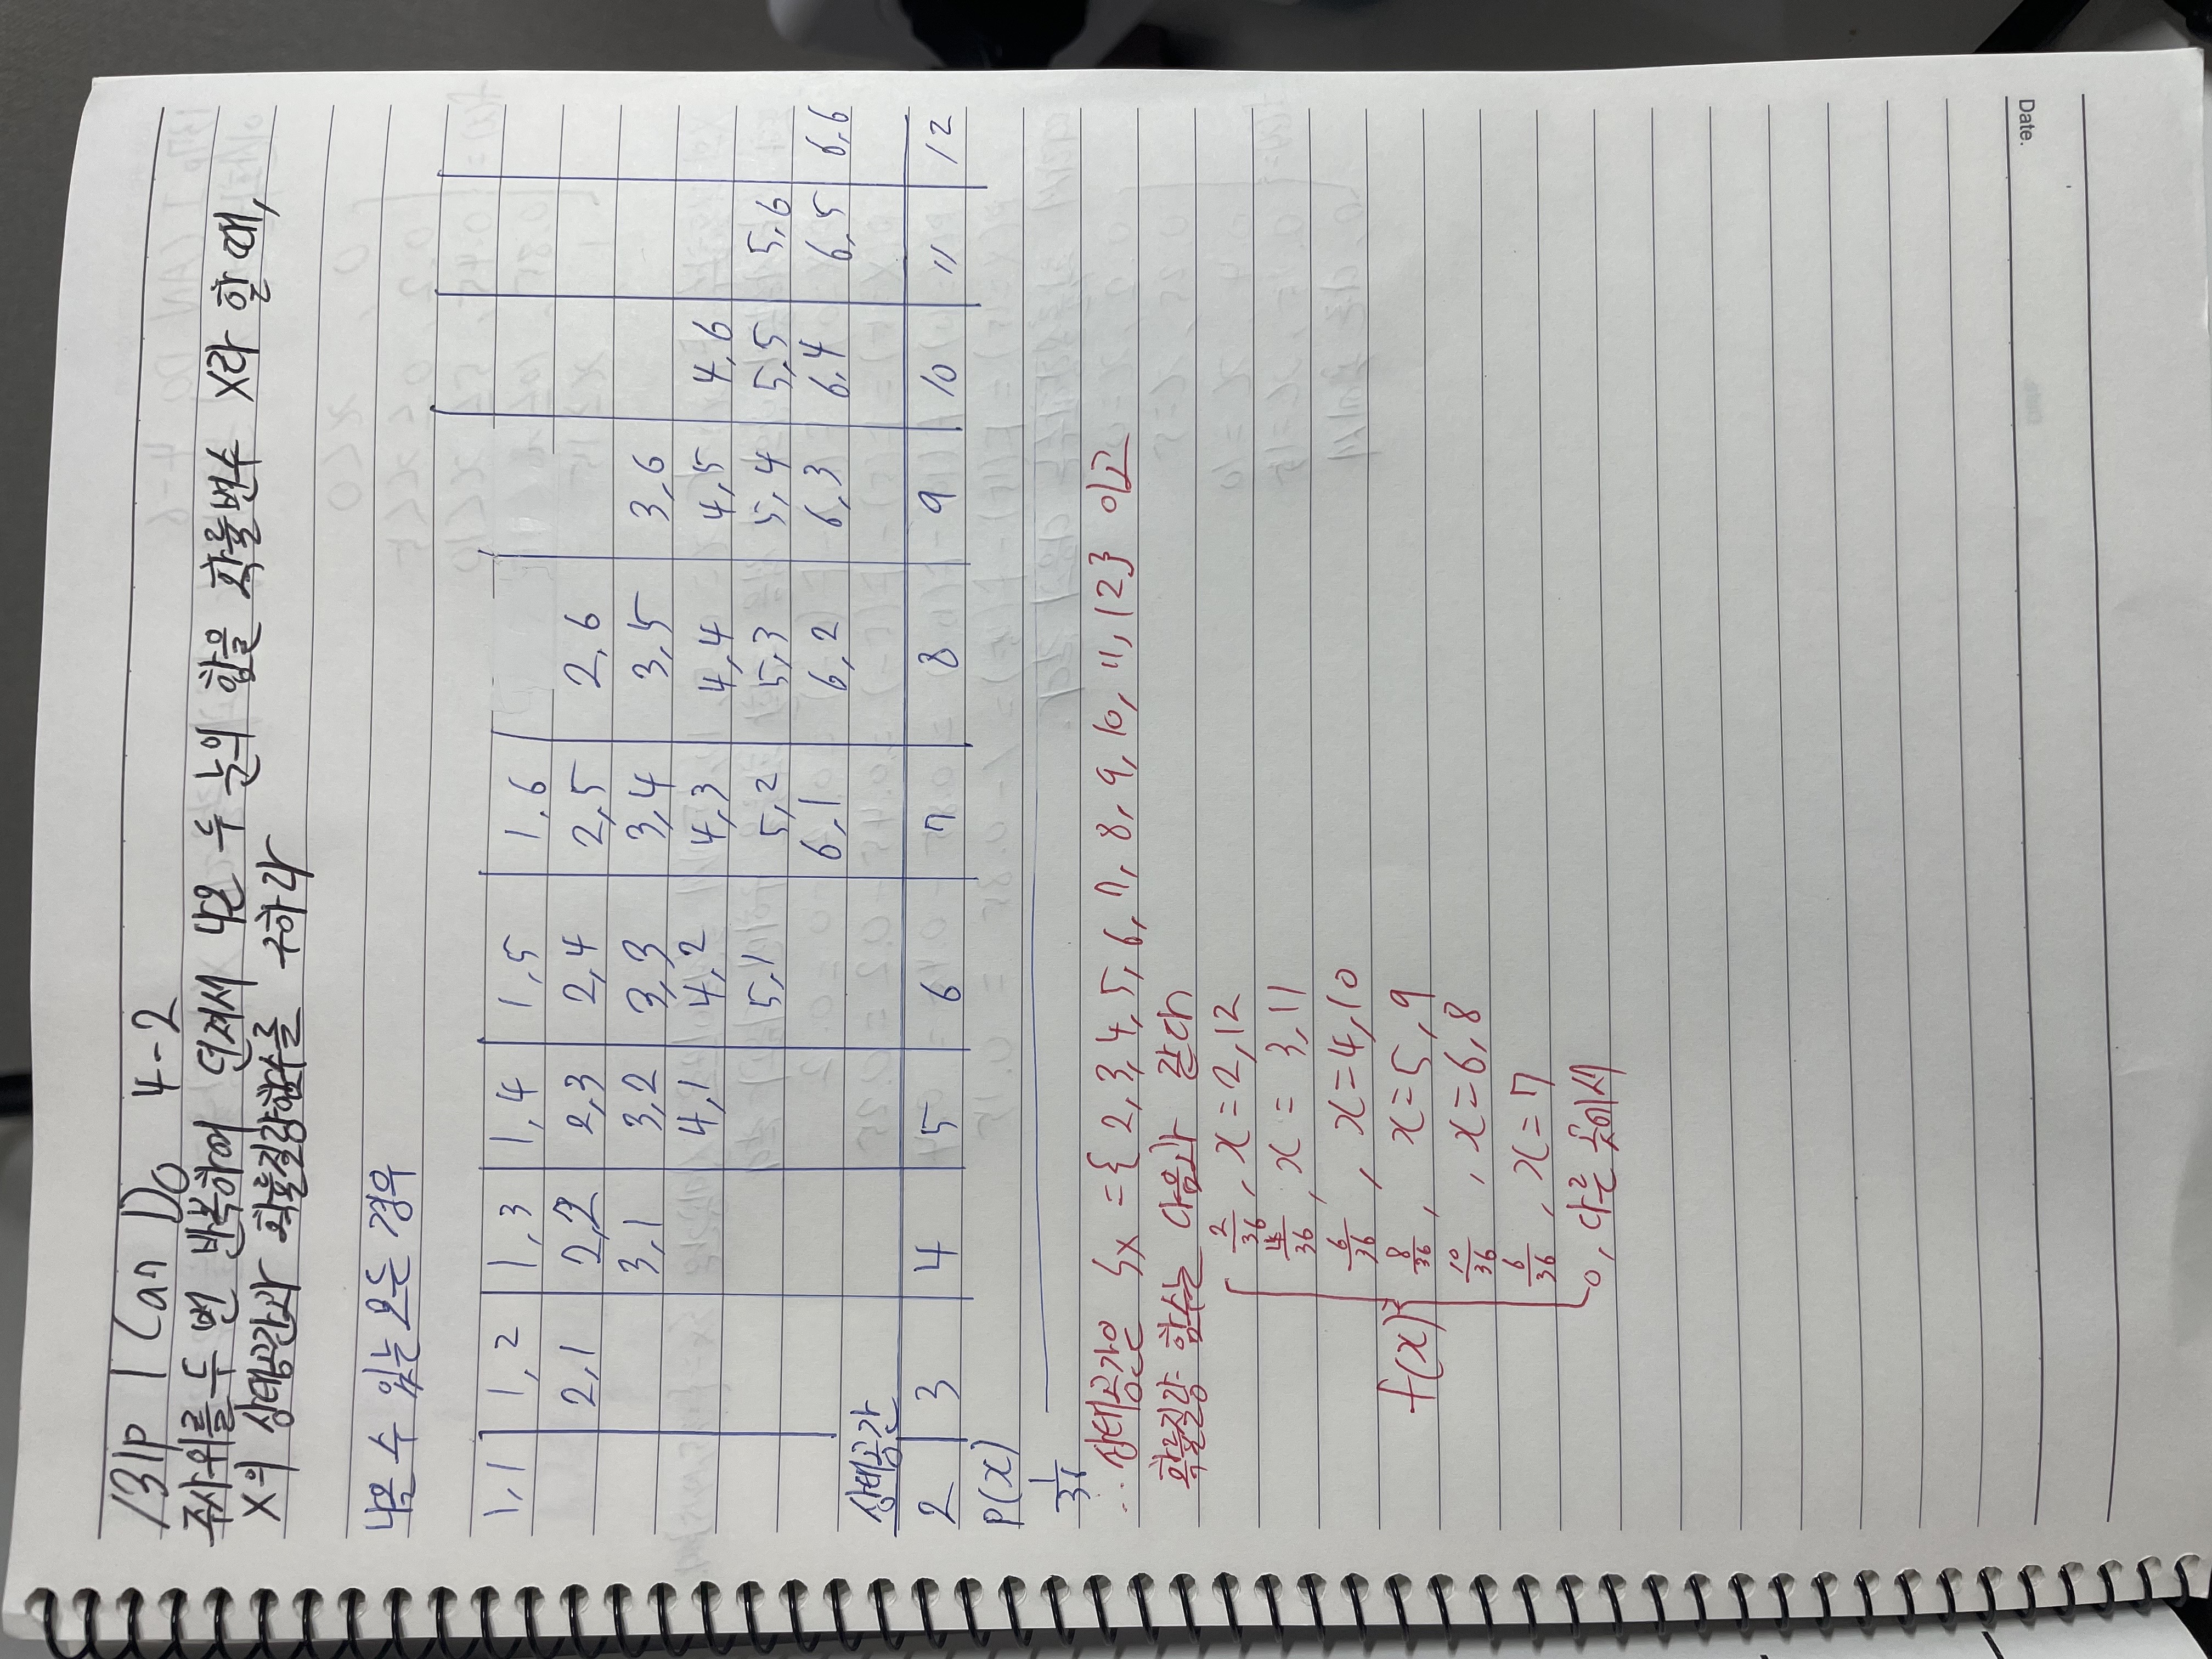 131p I Can Do 4-2
주사위를 두 번 반복하여 던져서 나온 두 눈의 합을 확률변수 X라 할 때,
X의 상태공간과 확률질량함수를 구하라
나올 수 있는 모든 경우
1,1 1,2 1,3 1,4 1,5 1,6
2,1 2,2 2,3 2,4 2,5 2,6
3,1 3,2 3,3 3,4 3,5 3,6
4,1 4,2 4,3 4,4 4,5 4,6
5,1 5,2 5,3 5,4 5,5 5,6
6,1 6,2 6,3 6,4 6,5 6,6
상태공간
2 3 4 5 6 7 8 9 10 11 12
P(x)
1/36
∴ 상태공간은 Sx = {2, 3, 4, 5, 6, 7, 8, 9, 10, 11, 12} 이고
확률질량 함수는 다음과 같다
2/36, x=2,12
4/36, x = 3,11
6/36, x=4,10
f(x)= 8/36, x=5,9
10/36, x=6,8
6/36, x=7
0, 다른 곳에서
Date.